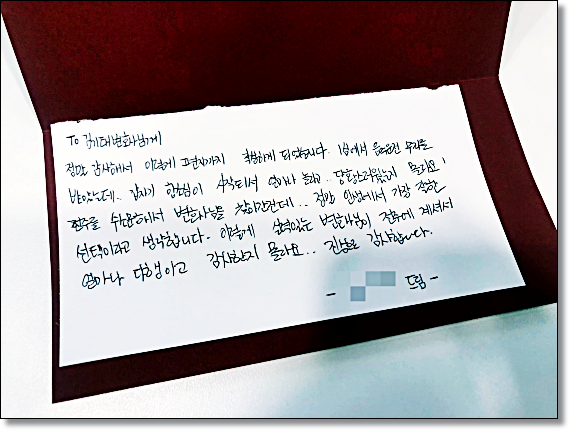 To 김기태변호사님께
정말 감사해서 이렇게 편지까지 작성하게 되었습니다. 1심에서 음주운전 무죄를
받았는데.. 갑자기 항소심이 시작되서 얼마나 놀라고.. 당황스러웠는지 몰라요!
전주를 수소문해서 변호사님을 찾아간건데.. 정말 인생에서 가장 잘한
선택이라고 생각합니다. 이렇게 실력있는 변호사님이 전주에 계셔서
얼마나 다행이고 감사한지 몰라요.. 진심으로 감사합니다.
- 드림 -